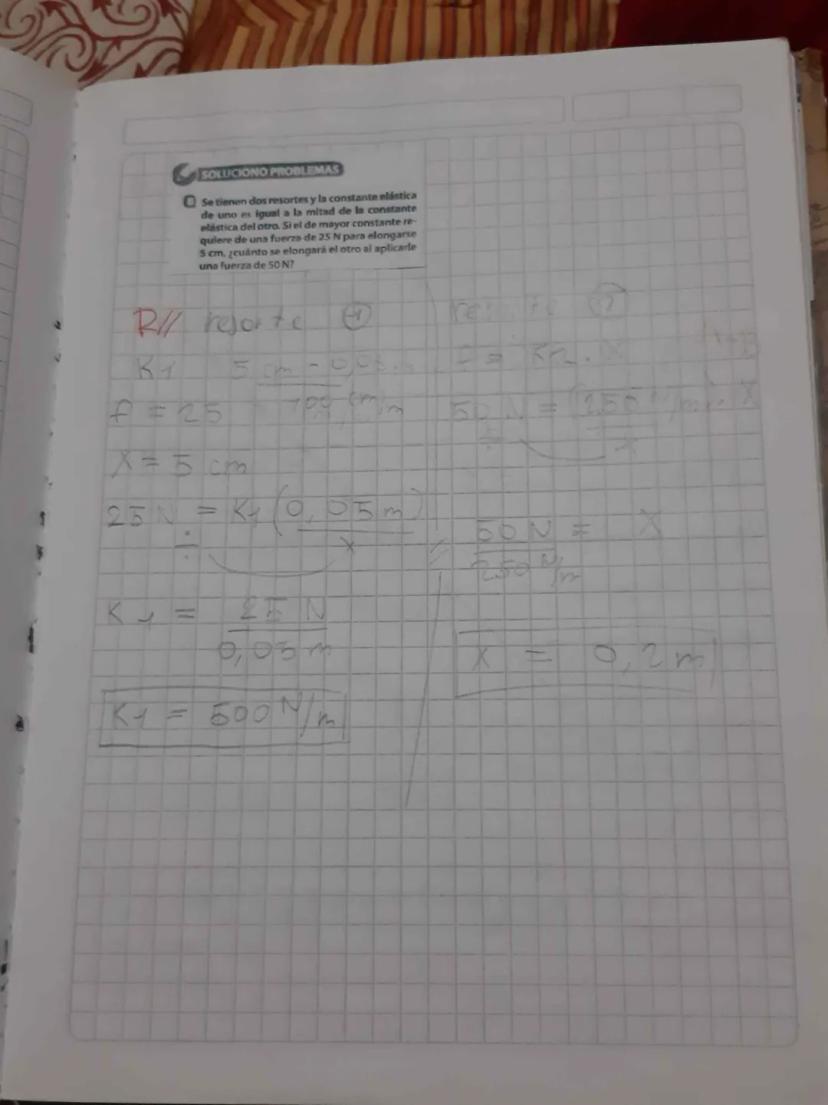 SOLUCIONO PROBLEMAS
Se tienen dos resortes y la constante elástica
de uno es igual a la mitad de la constante
elástica del otro. Si el de mayor constante re-
quiere de una fuerza de 25 N para elongarse
5 cm, ¿cuánto se elongará el otro al aplicarle
una fuerza de 50 N?
R// resorte 1
K1 5 cm = 0,05
100 cm/m
F = 25
X = 5 cm
25 N = K1 (0,05 m)
÷ x
K1 = 25 N
0,05 m
K1 = 500 N/m
resorte 2
F = K2 . X
50 N = (250 N/m) . X
÷ x
50 N = X
250 N/m
X = 0,2 m